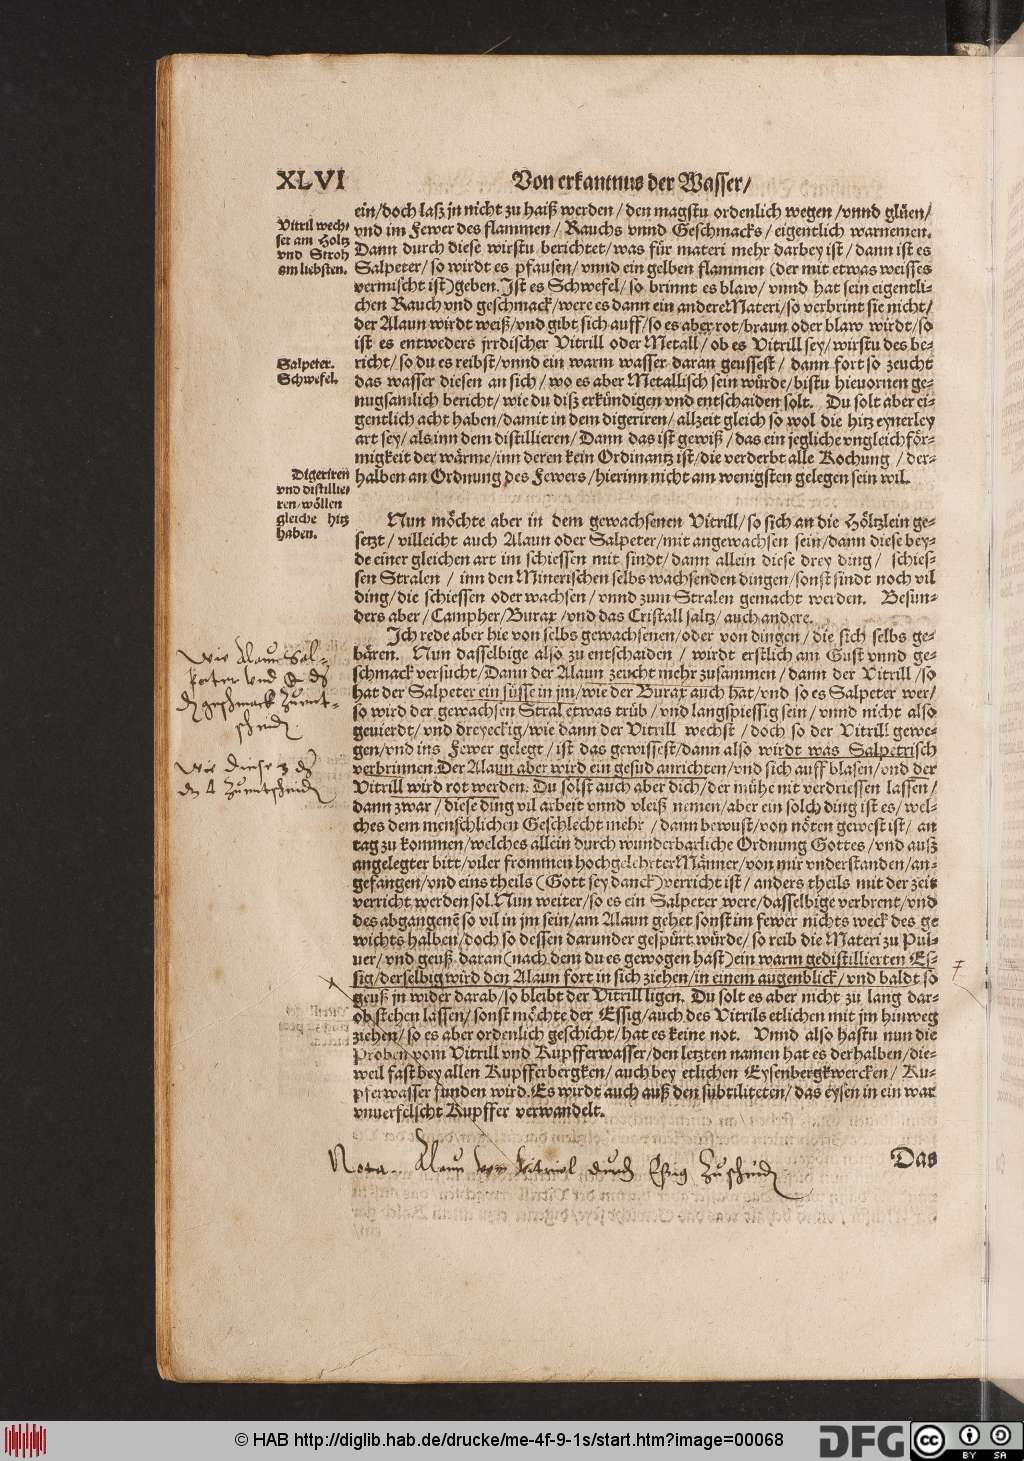 XLVI
Von erkantnus der Wasser/
ein/doch laß jn nicht zu haiß werden/den magstu ordenlich wegen/vnnd glüen/
vnd im Fewer des flammen/Rauchs vnnd Geschmacks/eigentlich warnemen.
Dann durch diese wirstu berichtet/was für materi mehr darbey ist/dann ist es
Salpeter/so wirdt es pfausen/vnnd ein gelben flammen (der mit etwas weisses
vermischt ist) geben. Ist es Schwefel/so brinnt es blaw/vnnd hat sein eigentli-
chen Rauch vnd geschmack/were es dann ein andere Materi/so verbrint sie nicht/
der Alaun wirdt weiß/vnd gibt sich auff/so es aber rot/braun oder blaw wirdt/so
ist es entweders jrrdischer Vitrill oder Metall/ob es Vitrill sey/wirstu des be-
richt/so du es reibst/vnnd ein warm wasser daran geussest/dann fort so zeucht
das wasser diesen an sich/wo es aber Metallisch sein würde/bistu hieuornen ge-
nugsamlich bericht/wie du diß erkündigen vnd entschaiden solt. Du solt aber ei-
gentlich acht haben/damit in dem digeriren/allzeit gleich so wol die hitz eynerley
art sey/als inn dem distillieren/Dann das ist gewiß/das ein jegliche vngleichför-
migkeit der wärme/inn deren kein Ordinantz ist/die verderbt alle Kochung/der-
halben an Ordnung des Fewers/hierinn nicht am wenigsten gelegen sein wil.
Vitril wech-
set am Holtz
vnd Stroh
am liebsten.
Salpeter.
Schwefel.
Digeriren
vnd distillie-
ren/wöllen
gleiche hitz
haben.
Nun möchte aber in dem gewachsenen Vitrill/so sich an die Höltzlein ge-
setzt/villeicht auch Alaun oder Salpeter/mit angewachsen sein/dann diese bey-
de einer gleichen art im schiessen mit sindt/dann allein diese drey ding/schies-
sen Stralen/inn den Minerischen selbs wachsenden dingen/sonst sindt noch vil
ding/die schiessen oder wachsen/vnnd zum Stralen gemacht werden. Besun-
ders aber/Campher/Burax/vnd das Cristall saltz/auch andere.
Ich rede aber hie von selbs gewachsenen/oder von dingen/die sich selbs ge-
bären. Nun dasselbige also zu entschaiden/wirdt erstlich am Gust vnnd ge-
schmack versucht/Dann der Alaun zeucht mehr zusammen/dann der Vitrill/so
hat der Salpeter ein süsse in jm/wie der Burax auch hat/vnd so es Salpeter wer/
so wird der gewachsen Stral etwas trüb/vnd langspiessig sein/vnnd nicht also
geuierdt/vnd dreyeckig/wie dann der Vitrill wechst/doch so der Vitrill gewe-
gen/vnd ins Fewer gelegt/ist das gewissest/dann also wirdt was Salpetrisch
verbrinnen. Der Alaun aber wird ein gesüd anrichten/vnd sich auff blasen/vnd der
Vitrill wird rot werden. Du solst auch aber dich/der mühe mit verdriessen lassen/
dann zwar/diese ding vil arbeit vnnd vleiß nemen/aber ein solch ding ist es/wel-
ches dem menschlichen Geschlecht mehr/dann bewust/von nöten gewest ist/an
tag zu kommen/welches allein durch wunderbarliche Ordnung Gottes/vnd auß
angelegter bitt/viler frommen hochgelehrter Männer/von mir vnderstanden/an-
gefangen/vnd eins theils (Gott sey danck) verricht ist/anders theils mit der zeit
verricht werden sol. Nun weiter/so es ein Salpeter were/dasselbige verbrent/vnd
des abgangenē so vil in jm sein/am Alaun gehet sonst im fewer nichts weck des ge
wichts halben/doch so dessen darunder gespürt würde/so reib die Materi zu Pul-
uer/vnd geuß daran (nach dem du es gewogen hast) ein warm gedistillierten Es-
sig/derselbig wird den Alaun fort in sich ziehen/in einem augenblick/vnd baldt so
geuß jn wider darab/so bleibt der Vitrill ligen. Du solt es aber nicht zu lang dar-
ob stehen lassen/sonst möchte der Essig/auch des Vitrils etlichen mit jm hinweg
ziehen/so es aber ordenlich geschicht/hat es keine not. Vnnd also hastu nun die
Proben vom Vitrill vnd Kupfferwasser/den letzten namen hat es derhalben/die-
weil fast bey allen Kupfferbergken/auch bey etlichen Eysenbergkwercken/Ku-
pferwasser funden wird. Es wirdt auch auß den subtiliteten/das eysen in ein war
vnuerfelscht Kupffer verwandelt.
Wie Alaun Sal-
peter vnd
geschmack Zuent-
scheid
Wie diese
Zuentscheid
Nota. Alaun von vitriol durch Essig Zuscheid
Das
© HAB http://diglib.hab.de/drucke/me-4f-9-1s/start.htm?image=00068
DFG
cc
BY SA